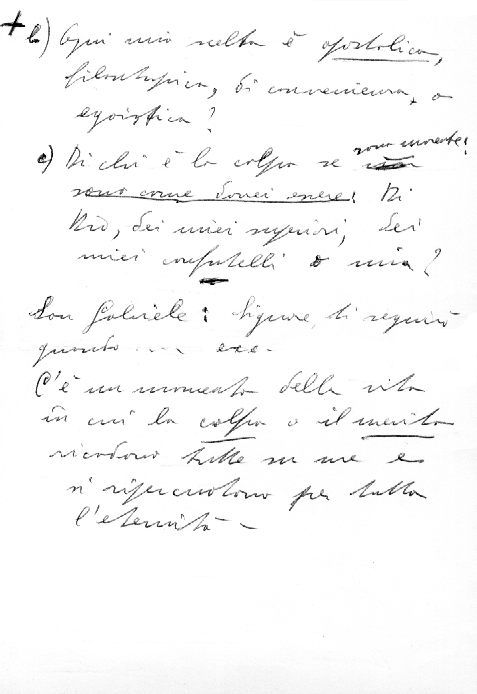 + b) Ogni mia scelta è apostolica,
filantropica, di convenienza, o
egoistica?
c) Di chi è la colpa se sono morente!
sono come dovei essere! Di
Dio, dei miei superiori, dei
miei confratelli o mia?
San Gabriele: Signore, ti seguirò
quando ... ecc.
C'è un momento della vita
in cui la colpa o il merito
ricadono tutte su me e
si ripercuotono per tutta
l'eternità -